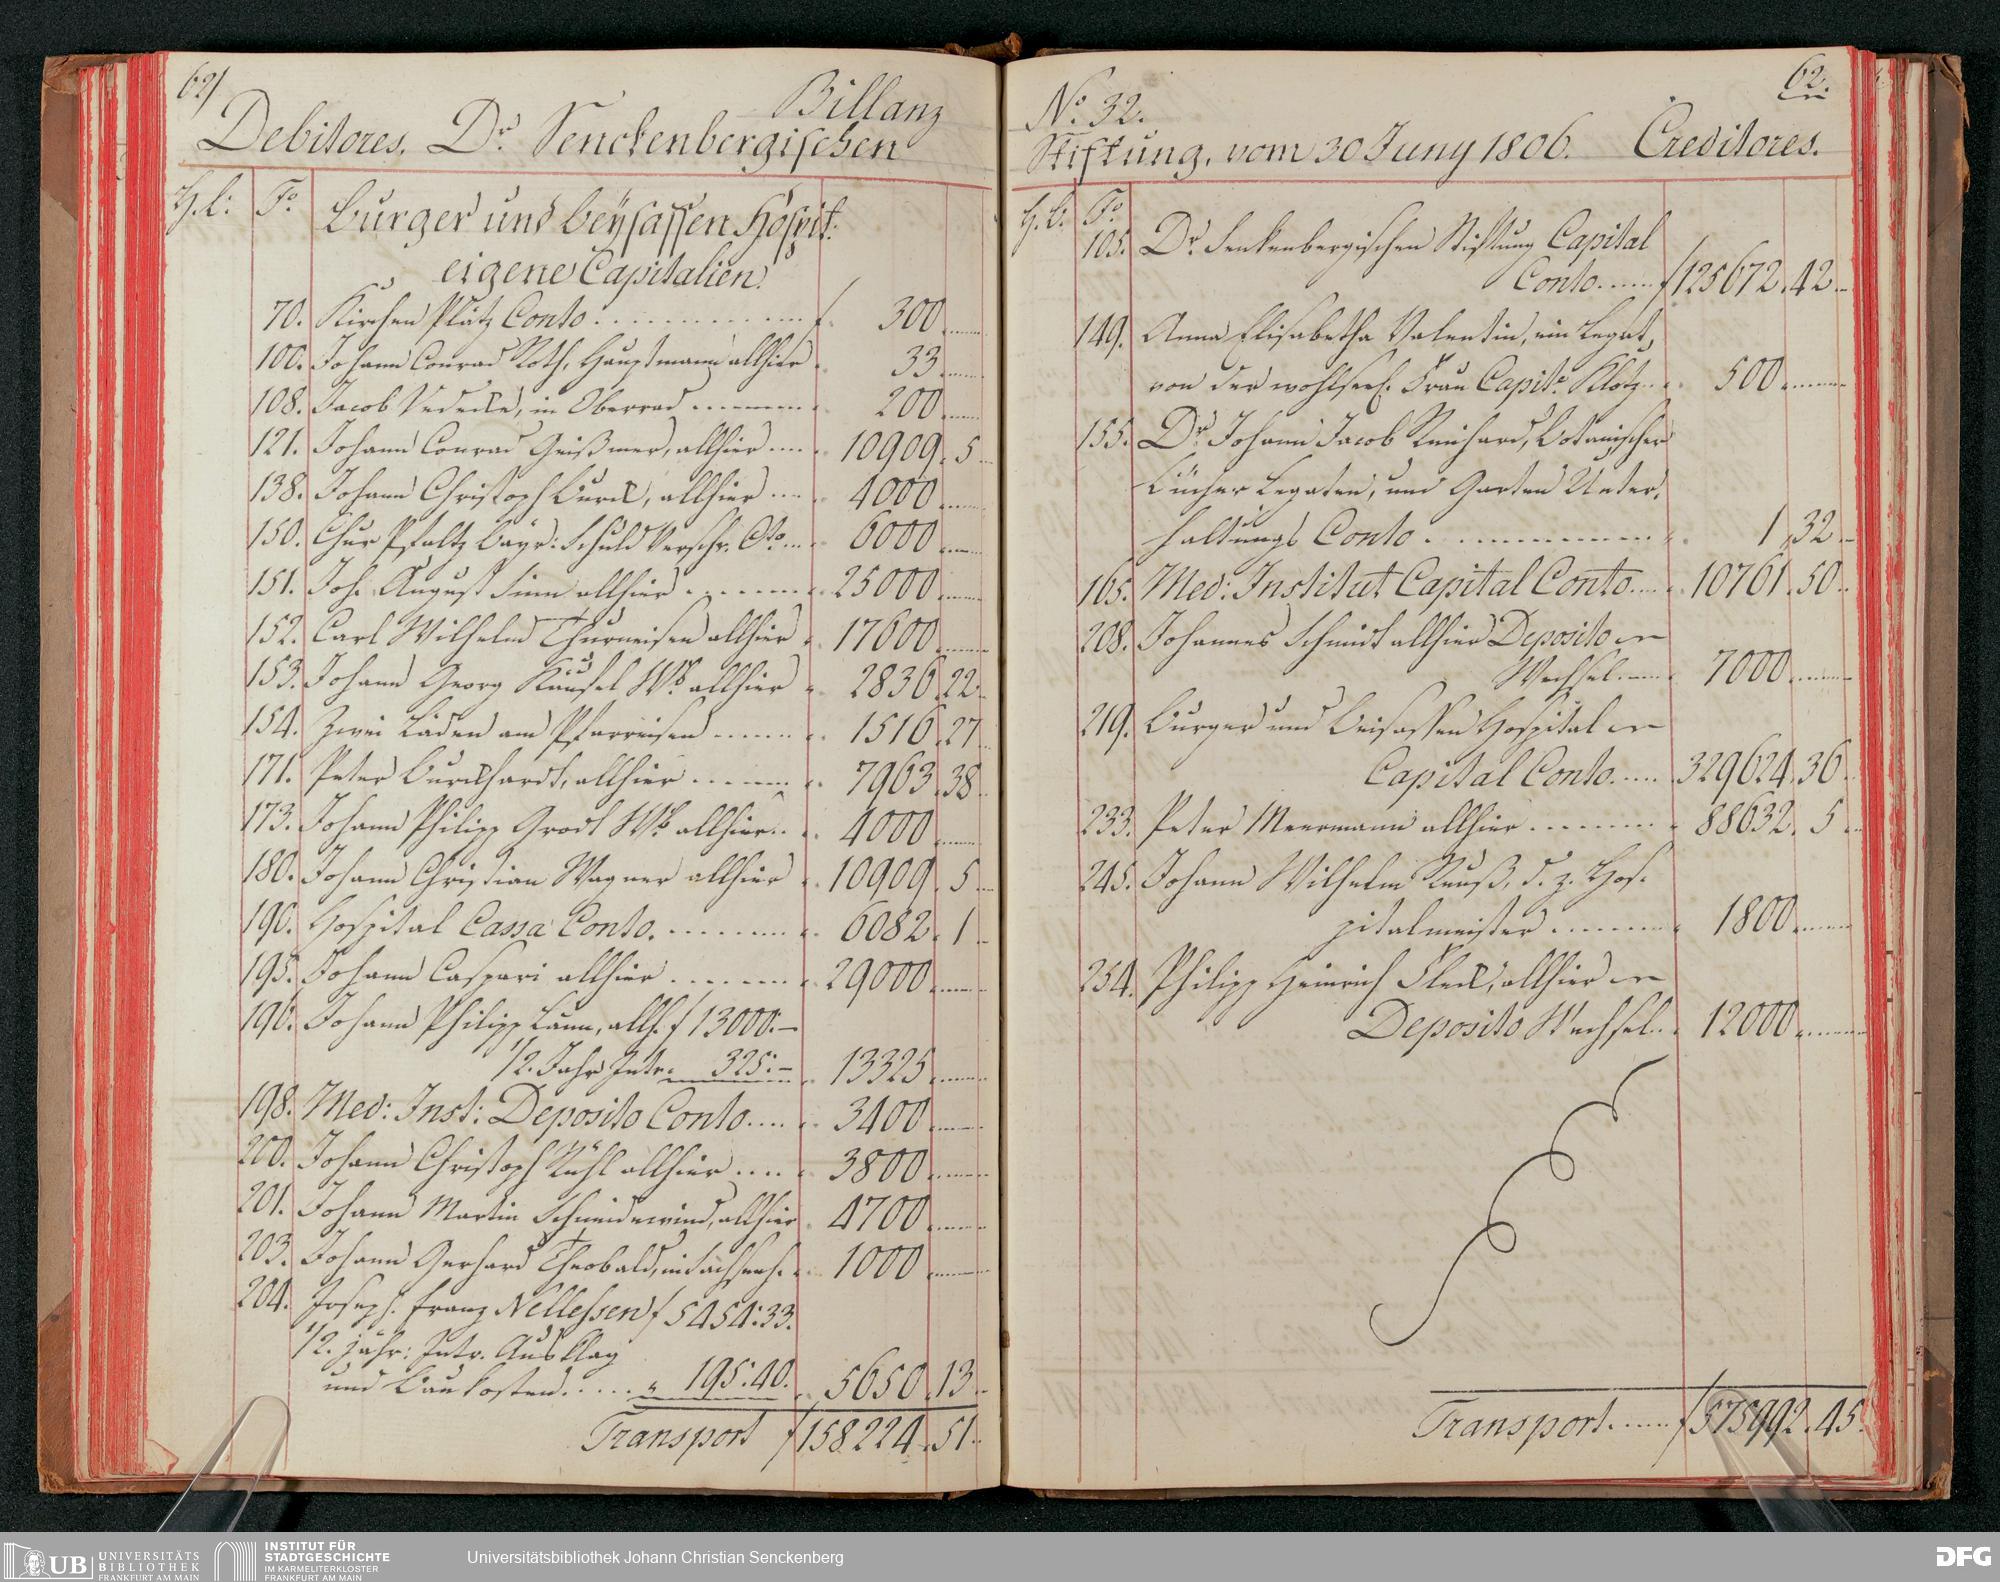 62/
Billanz
Debitores. Dr. Senckenbergischen
H.b: Fo.
Burger und beysassen Hospit:
eigene Capitalien.
70. Kirchen Platz Conto . . . . . f. 300 ....
100. Johann Conrad Roth, Hauptmann allhier 33 ....
108. Jacob , in Oberrad ...... 200 ....
121. Johann Conrad Geißmer, allhier .... 10909. 5 ..
138. Johann Christoph Burck, allhier .... 4000 ....
150. Chur Pfaltz Bayr: Schuld Versch: Cto... 6000 ....
151. Joh. August allhier ....... 25000 ....
152. Carl Wilhelm Thurneisen allhier 17600 ....
153. Johann Georg Käussel Wb. allhier 2836.22 ..
154. Zwei Läden am Pfarreisen ...... 1516.27 ..
171. Peter Burckhardt, allhier ...... 7963.38 ..
173. Johann Philipp Wb. allhier .. 4000 ....
180. Johann Christian Wagner allhier 10909. 5 ..
190. Hospital Cassa Conto. ....... 6082. 1 ..
195. Johann Caspari allhier ....... 29000 ....
196. Johann Philipp , allh. f 13000:—
1/2. Jahr Intr. 325:— 13325 ....
198. Med: Inst: Deposito Conto .... 3400 ....
200. Johann Christoph Kühl allhier .... 3800 ....
201. Johann Martin Schneidewind, allhier 4700 ....
203. Johann Gerhard Theobald, in Sachsenh. 1000 ....
204. Joseph. Franz Nellessen f 5454:33.
1/2. jähr: Intr. Ausklag
und Baukosten. .... " 195:40. 5650.13 ..
Transport f 158224.51.
62.
No. 32.
Stiftung, vom 30 Juny 1806. Creditores.
H.b: Fo.
105. Dr. Senkenbergischen Stiftung Capital
Conto. ..... f 125672.42 ..
149. Anna Elisabetha Valentin, ein Legat,
von der wohlseel. Frau Capit. Klotz .. 500 ....
155. Dr. Johann Jacob Reinhard, Botanischer
Bücher Legaten, und Garten Unter,
haltungs Conto . ......... 1.32 ..
165. Med: Institut Capital Conto .... 10761.50 ..
208. Johannes Schmidt allhier Deposito
Wechsel. ... 7000 ....
219. Burger und Beisassen Hospital
Capital Conto. .... 329624.36 ..
233. Peter Meermann allhier ........ 88632. 5 ..
245. Johann Wilhelm Reuß, d. z. Hos-
pitalmeister ........ 1800 ....
254. Philipp Heinrich Fleck, allhier
Deposito Wechsel .. 12000 ....
Transport. ..... f 575992.45.
UB UNIVERSITÄTS
BIBLIOTHEK
FRANKFURT AM MAIN
INSTITUT FÜR
STADTGESCHICHTE
IM KARMELITERKLOSTER
FRANKFURT AM MAIN
Universitätsbibliothek Johann Christian Senckenberg
DFG